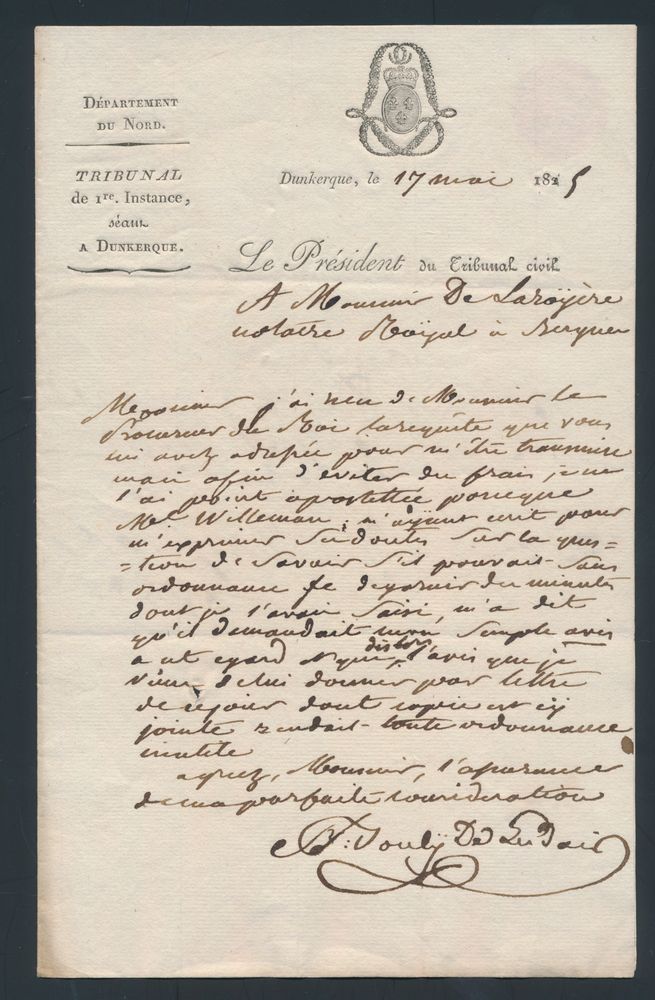 DÉPARTEMENT
DU NORD.
TRIBUNAL
de 1re. Instance,
séant
A DUNKERQUE.
Dunkerque, le 17 mai 1825
Le Président du Tribunal civil
A Monsieur De Laroÿère
notaire Roÿal à Bergues
Monsieur j'ai reçu de Monsieur le
Procureur du Roi la requête que vous
lui avez adressée pour m'être transmise
mais afin d'éviter des frais, je ne
l'ai point apostillée parceque
Me. Willeman, m'aÿant écrit pour
m'exprimer ses doutes sur la ques=
=tion de savoir s'il pouvait sans
ordonnance se dégarnir des minutes
dont je l'avais saisi, m'a dit
qu'il demandait mon simple avis
à cet égard et que dès lors l'avis que je
viens de lui donner par lettre
de ce jour dont copie est cÿ
jointe rendait toute ordonnance
inutile
agréez, Monsieur, l'assurance
de ma parfaite considération